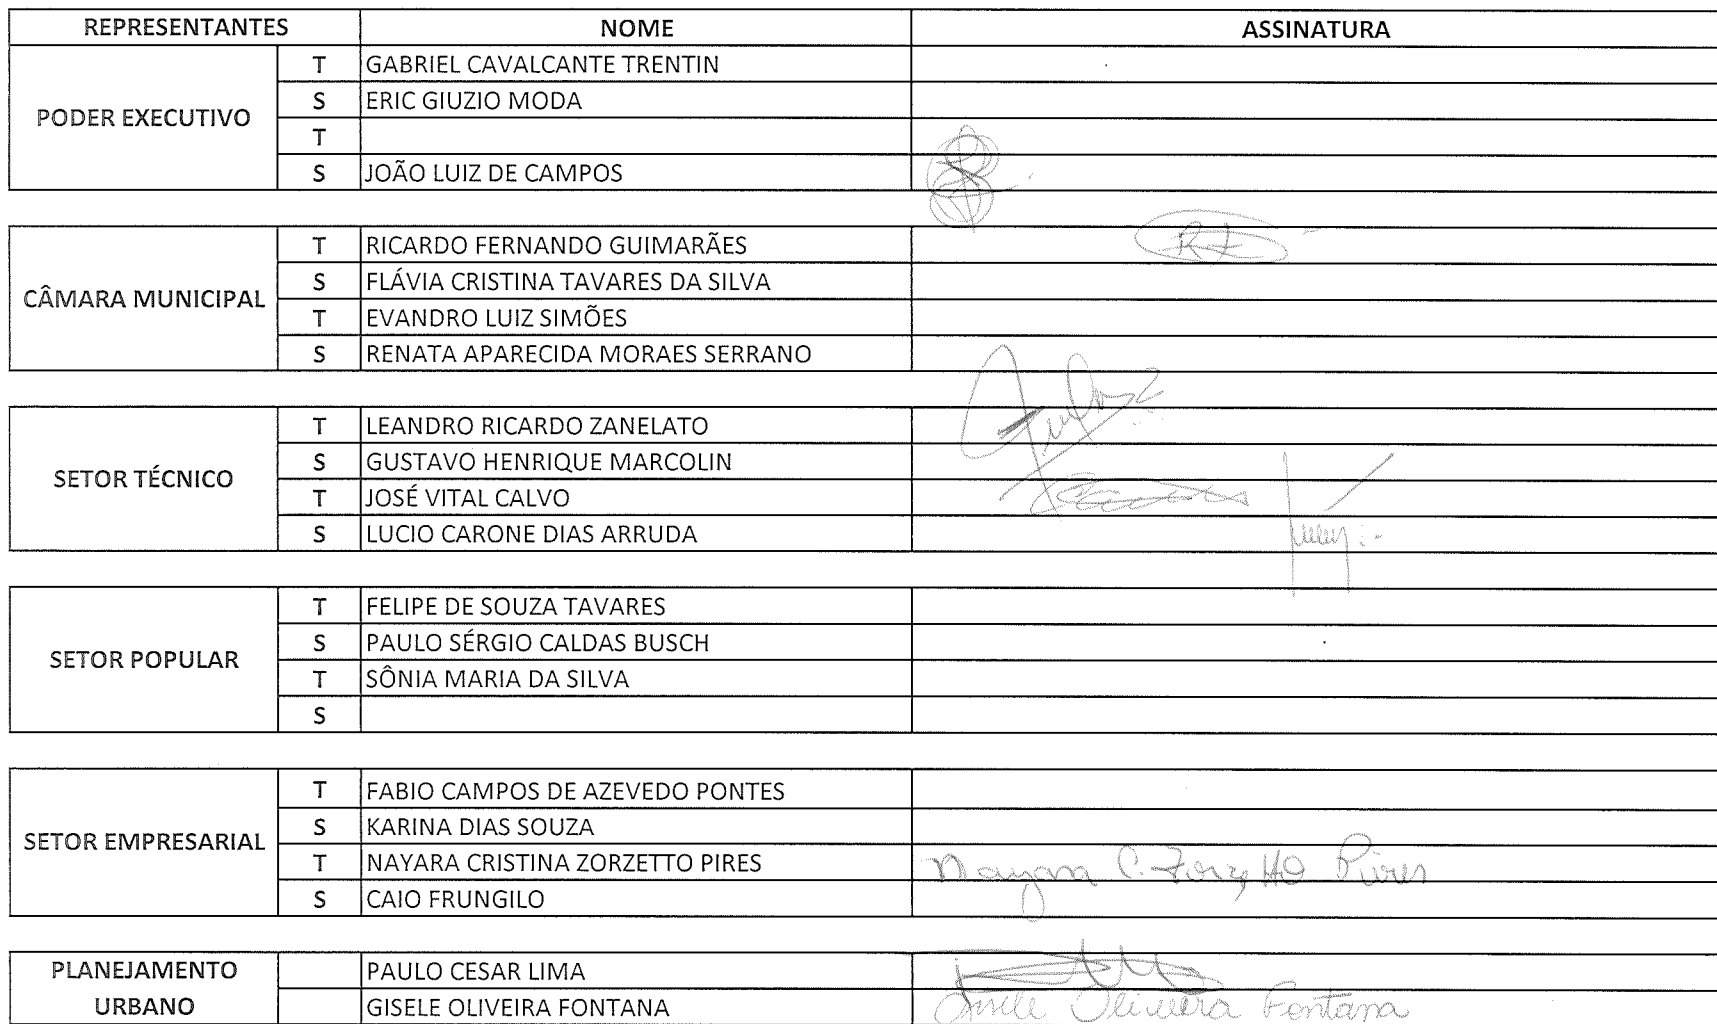 REPRESENTANTES NOME ASSINATURA
PODER EXECUTIVO
T GABRIEL CAVALCANTE TRENTIN
S ERIC GIUZIO MODA
T
S JOÃO LUIZ DE CAMPOS
CÂMARA MUNICIPAL
T RICARDO FERNANDO GUIMARÃES RF
S FLÁVIA CRISTINA TAVARES DA SILVA
T EVANDRO LUIZ SIMÕES
S RENATA APARECIDA MORAES SERRANO
SETOR TÉCNICO
T LEANDRO RICARDO ZANELATO
S GUSTAVO HENRIQUE MARCOLIN
T JOSÉ VITAL CALVO
S LUCIO CARONE DIAS ARRUDA
SETOR POPULAR
T FELIPE DE SOUZA TAVARES
S PAULO SÉRGIO CALDAS BUSCH
T SÔNIA MARIA DA SILVA
S
SETOR EMPRESARIAL
T FABIO CAMPOS DE AZEVEDO PONTES
S KARINA DIAS SOUZA
T NAYARA CRISTINA ZORZETTO PIRES Nayara C. Zorzetto Pires
S CAIO FRUNGILO
PLANEJAMENTO
URBANO
PAULO CESAR LIMA
GISELE OLIVEIRA FONTANA Gisele Oliveira Fontana